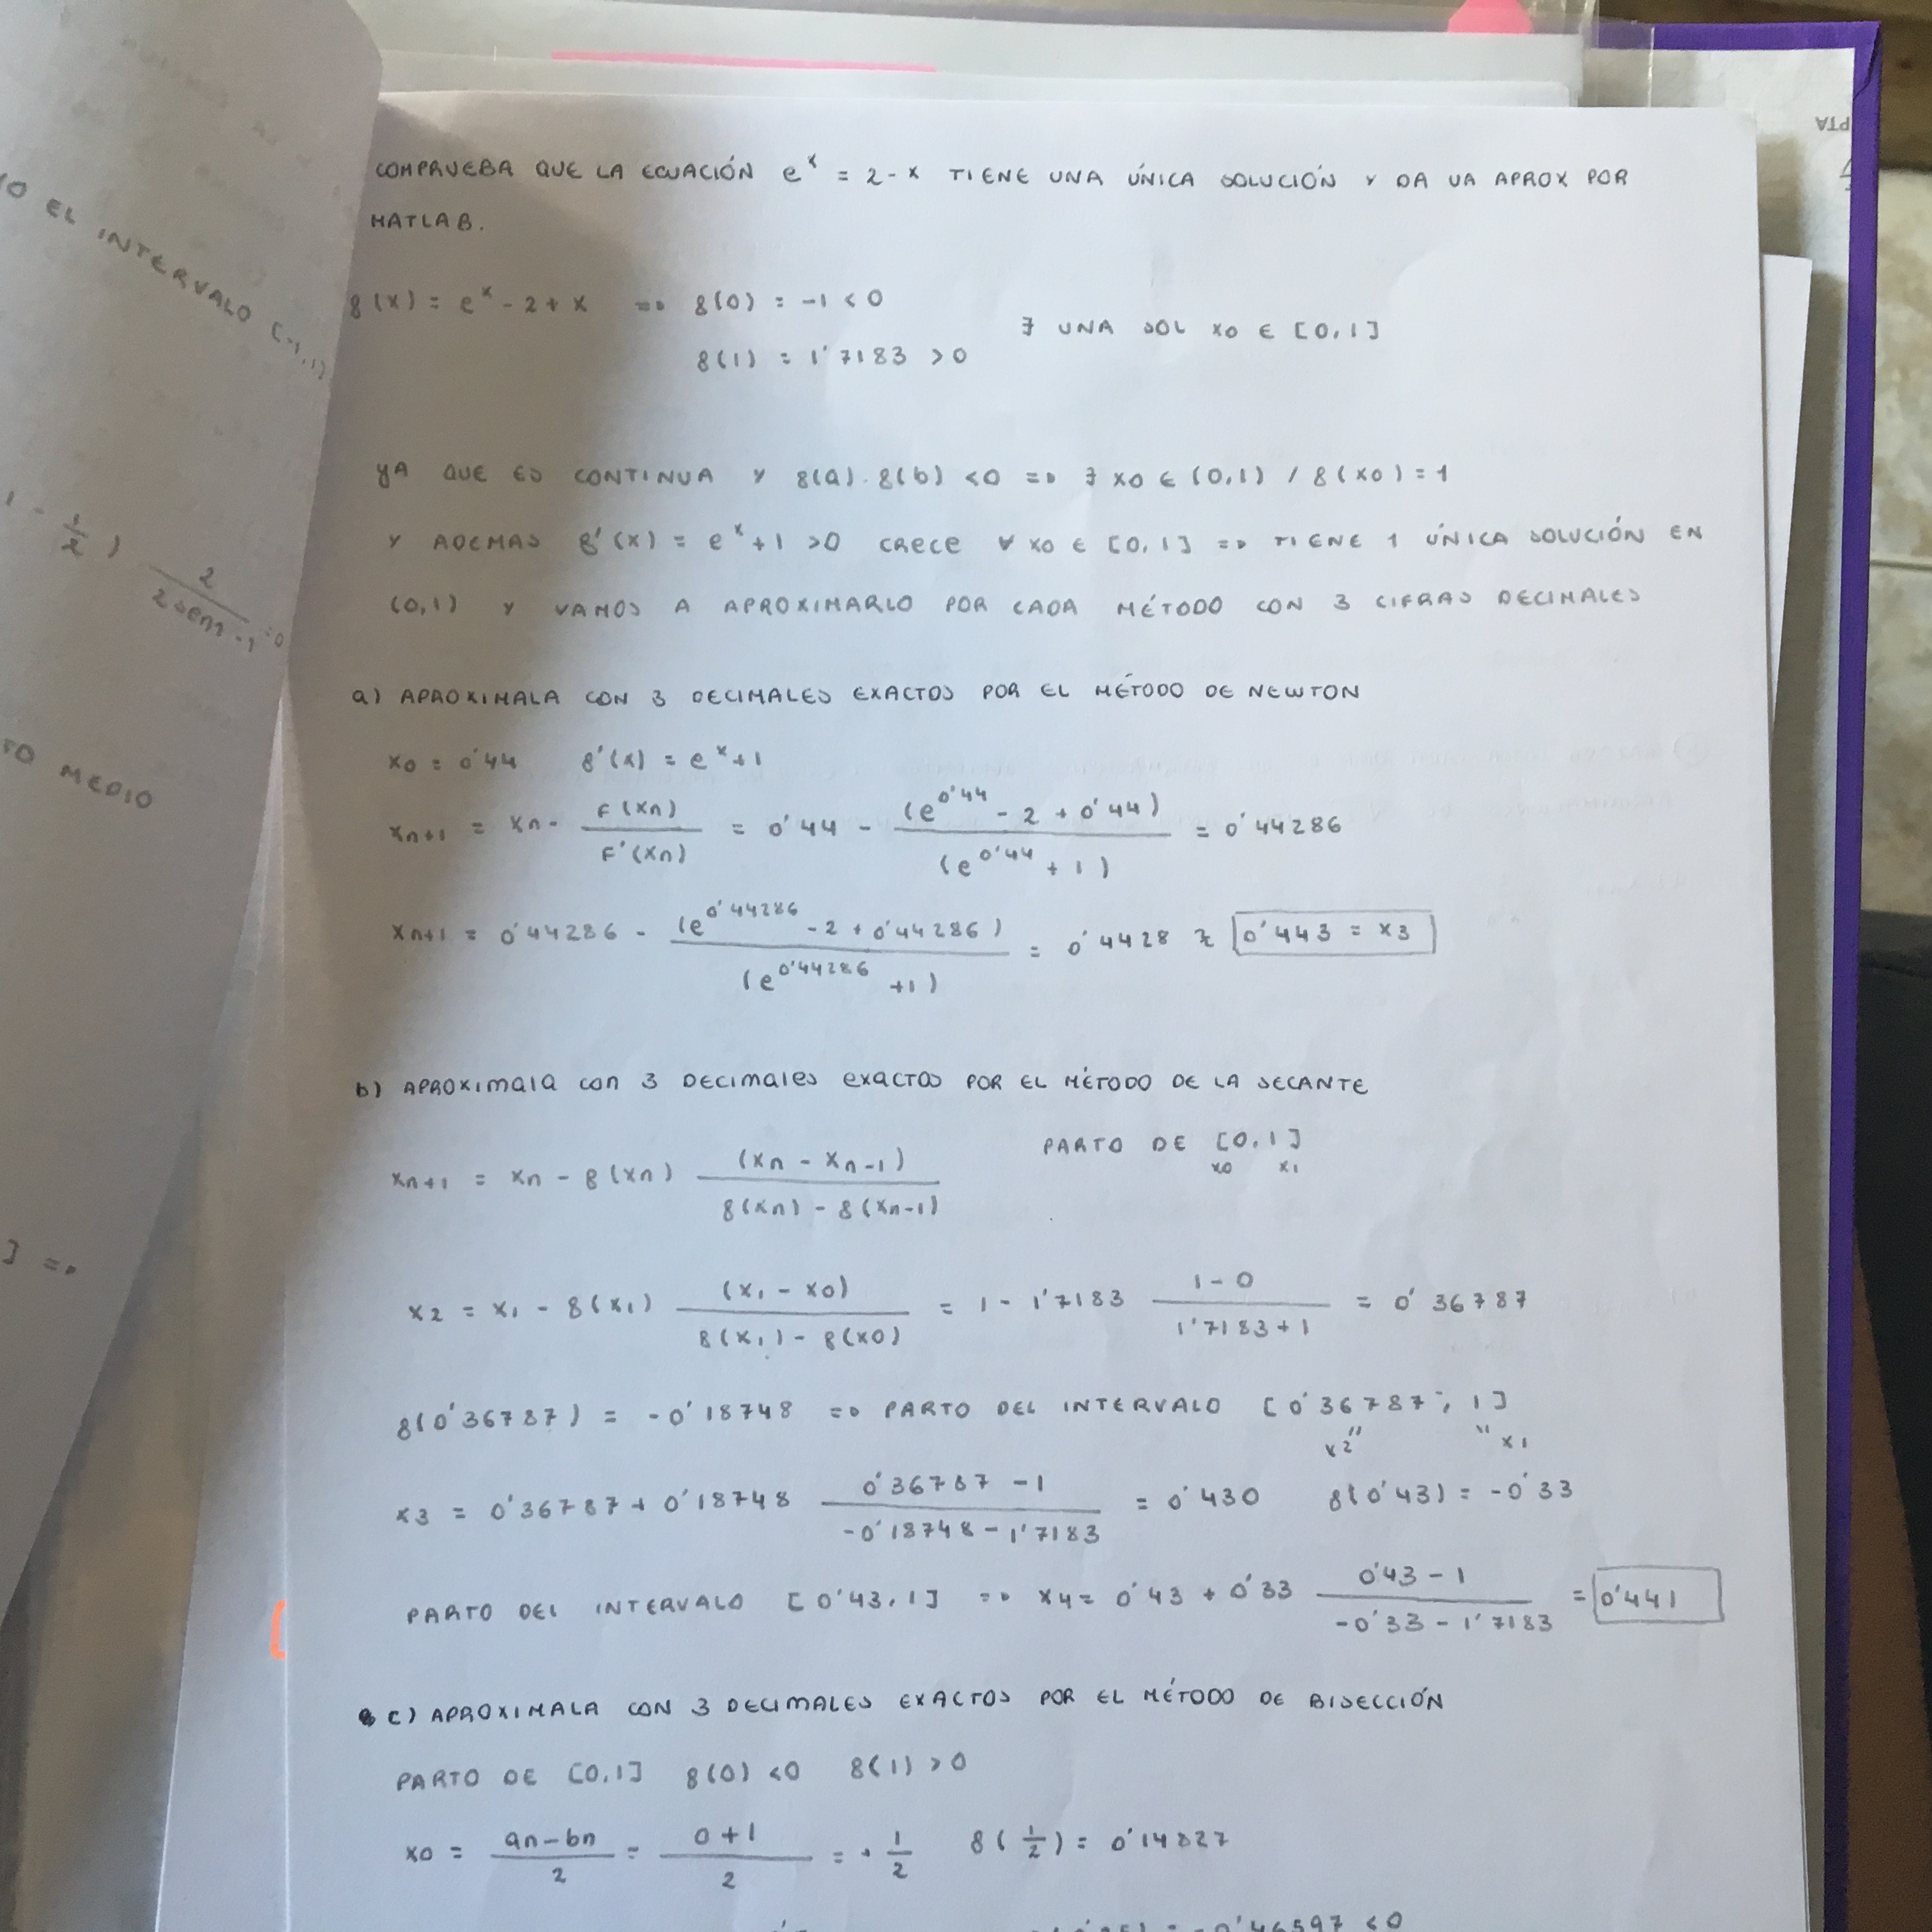 COMPRUEBA QUE LA ECUACIÓN e^x = 2 - x TIENE UNA ÚNICA SOLUCIÓN Y DA UA APROX POR
MATLAB.
8(x) = e^x - 2 + x => 8(0) = -1 < 0
∃ UNA SOL x0 ∈ [0,1]
8(1) = 1'7183 > 0
YA QUE ES CONTINUA Y 8(a).8(b) <0 => ∃ x0 ∈ (0,1) / 8(x0) = 1
Y ADEMAS 8'(x) = e^x + 1 >0 CRECE ∀ x0 ∈ [0,1] => TIENE 1 ÚNICA SOLUCIÓN EN
(0,1) Y VAMOS A APROXIMARLO POR CADA MÉTODO CON 3 CIFRAS DECIMALES
a) APROXIMALA CON 3 DECIMALES EXACTOS POR EL MÉTODO DE NEWTON
x0 = 0'44 8'(x) = e^x + 1
xn+1 = xn - F(xn) / F'(xn) = 0'44 - (e^0'44 - 2 + 0'44) / (e^0'44 + 1) = 0'44286
xn+1 = 0'44286 - (e^0'44286 - 2 + 0'44286) / (e^0'44286 + 1) = 0'4428 ≈ 0'443 = x3
b) APROXIMALA CON 3 DECIMALES EXACTOS POR EL MÉTODO DE LA SECANTE
PARTO DE [0,1]
x0 x1
xn+1 = xn - 8(xn) (xn - xn-1) / 8(xn) - 8(xn-1)
x2 = x1 - 8(x1) (x1 - x0) / 8(x1) - 8(x0) = 1 - 1'7183 1-0 / 1'7183+1 = 0'36787
8(0'36787) = -0'18748 => PARTO DEL INTERVALO [0'36787, 1]
x2" " x1
x3 = 0'36787 + 0'18748 0'36787 - 1 / -0'18748 - 1'7183 = 0'430 8(0'43) = -0'33
PARTO DEL INTERVALO [0'43,1] => x4 = 0'43 + 0'33 0'43 - 1 / -0'33 - 1'7183 = 0'441
c) APROXIMALA CON 3 DECIMALES EXACTOS POR EL MÉTODO DE BISECCIÓN
PARTO DE [0,1] 8(0) <0 8(1) >0
x0 = an-bn / 2 = 0+1 / 2 = 1/2 8(1/2) = 0'14827
= -0'46597 <0
EL INTERVALO [-1,1]
1 - 1/2 ) 2 / 2sen1 -1 =0
MEDIO
] =>
PTA